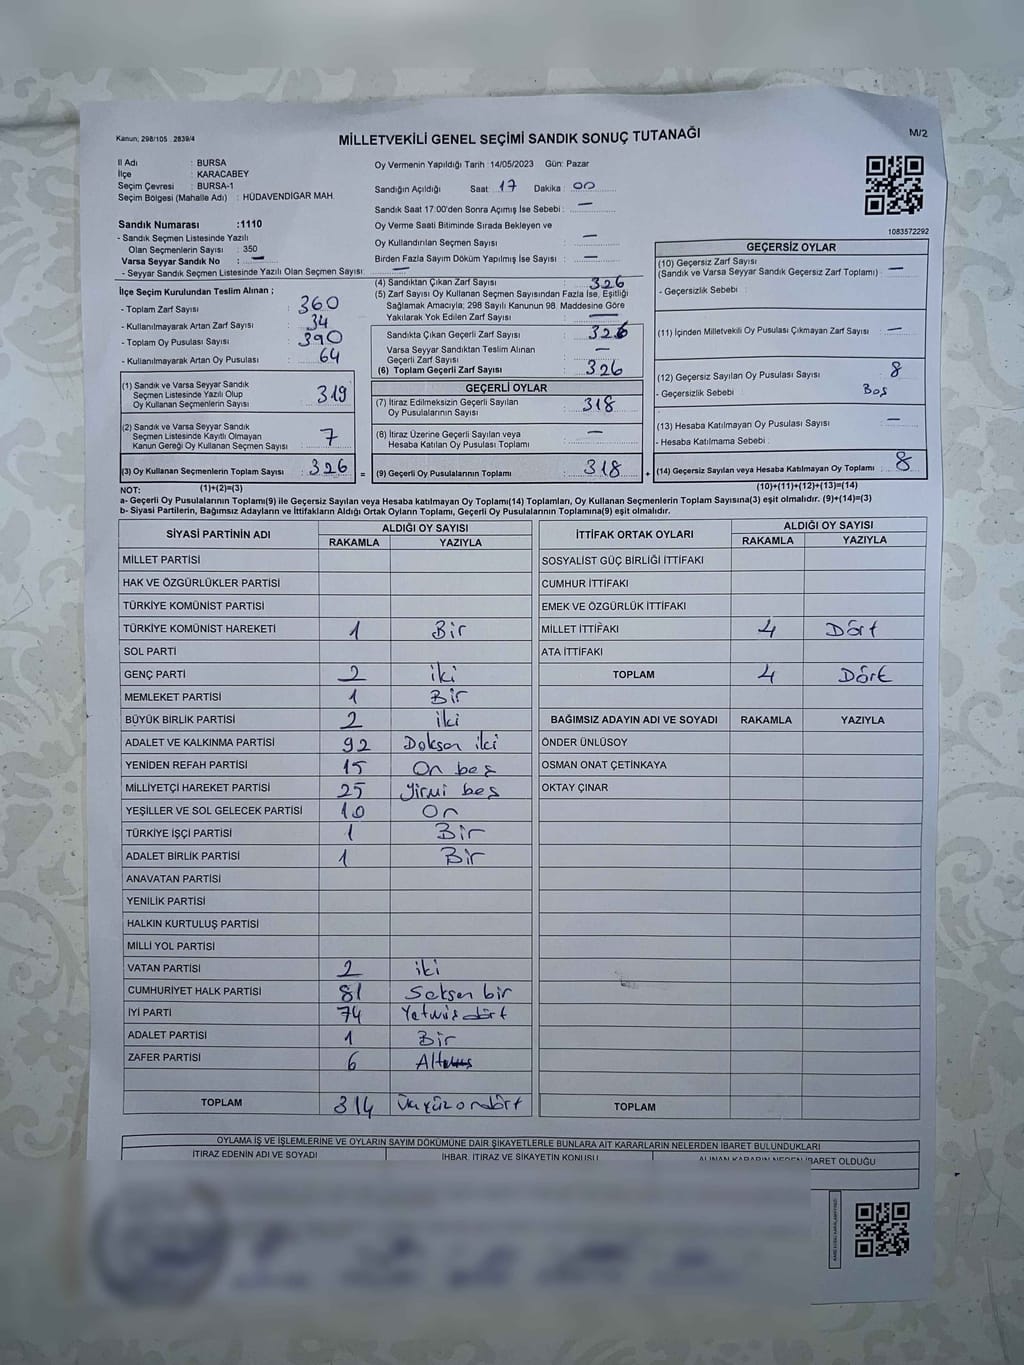 Kanun; 298/105 2839/4
MİLLETVEKİLİ GENEL SEÇİMİ SANDIK SONUÇ TUTANAĞI
M/2
İl Adı : BURSA
İlçe : KARACABEY
Seçim Çevresi : BURSA-1
Seçim Bölgesi (Mahalle Adı) : HÜDAVENDİGAR MAH.
Oy Vermenin Yapıldığı Tarih :14/05/2023 Gün: Pazar
Sandığın Açıldığı Saat :17 Dakika : 00
Sandık Saat 17:00'den Sonra Açımış İse Sebebi : —
Oy Verme Saati Bitiminde Sırada Bekleyen ve
Oy Kullandırılan Seçmen Sayısı : —
Birden Fazla Sayım Döküm Yapılmış İse Sayısı : —
1083572292
Sandık Numarası :1110
- Sandık Seçmen Listesinde Yazılı
Olan Seçmenlerin Sayısı : 350
Varsa Seyyar Sandık No : —
- Seyyar Sandık Seçmen Listesinde Yazılı Olan Seçmen Sayısı: —
İlçe Seçim Kurulundan Teslim Alınan ;
- Toplam Zarf Sayısı : 360
- Kullanılmayarak Artan Zarf Sayısı : 34
- Toplam Oy Pusulası Sayısı : 390
- Kullanılmayarak Artan Oy Pusulası : 64
(1) Sandık ve Varsa Seyyar Sandık
Seçmen Listesinde Yazılı Olup
Oy Kullanan Seçmenlerin Sayısı : 319
(2) Sandık ve Varsa Seyyar Sandık
Seçmen Listesinde Kayıtlı Olmayan
Kanun Gereği Oy Kullanan Seçmen Sayısı : 7
(3) Oy Kullanan Seçmenlerin Toplam Sayısı : 326
(4) Sandıktan Çıkan Zarf Sayısı : 326
(5) Zarf Sayısı Oy Kullanan Seçmen Sayısından Fazla İse, Eşitliği
Sağlamak Amacıyla; 298 Sayılı Kanunun 98. Maddesine Göre
Yakılarak Yok Edilen Zarf Sayısı : —
Sandıkta Çıkan Geçerli Zarf Sayısı : 326
Varsa Seyyar Sandıktan Teslim Alınan
Geçerli Zarf Sayısı : —
(6) Toplam Geçerli Zarf Sayısı : 326
GEÇERLİ OYLAR
(7) İtiraz Edilmeksizin Geçerli Sayılan
Oy Pusulalarının Sayısı : 318
(8) İtiraz Üzerine Geçerli Sayılan veya
Hesaba Katılan Oy Pusulası Toplamı : —
= (9) Geçerli Oy Pusulalarının Toplamı : 318
GEÇERSİZ OYLAR
(10) Geçersiz Zarf Sayısı
(Sandık ve Varsa Seyyar Sandık Geçersiz Zarf Toplamı) : —
- Geçersizlik Sebebi :
(11) İçinden Milletvekili Oy Pusulası Çıkmayan Zarf Sayısı : —
(12) Geçersiz Sayılan Oy Pusulası Sayısı : 8
- Geçersizlik Sebebi : Boş
(13) Hesaba Katılmayan Oy Pusulası Sayısı : —
- Hesaba Katılmama Sebebi :
+ (14) Geçersiz Sayılan veya Hesaba Katılmayan Oy Toplamı : 8
NOT: (1)+(2)=(3)
(10)+(11)+(12)+(13)=(14)
a- Geçerli Oy Pusulalarının Toplamı(9) ile Geçersiz Sayılan veya Hesaba katılmayan Oy Toplamı(14) Toplamları, Oy Kullanan Seçmenlerin Toplam Sayısına(3) eşit olmalıdır. (9)+(14)=(3)
b- Siyasi Partilerin, Bağımsız Adayların ve İttifakların Aldığı Ortak Oyların Toplamı, Geçerli Oy Pusulalarının Toplamına(9) eşit olmalıdır.
SİYASİ PARTİNİN ADI ALDIĞI OY SAYISI
RAKAMLA YAZIYLA
MİLLET PARTİSİ
HAK VE ÖZGÜRLÜKLER PARTİSİ
TÜRKİYE KOMÜNİST PARTİSİ
TÜRKİYE KOMÜNİST HAREKETİ 1 Bir
SOL PARTİ
GENÇ PARTİ 2 iki
MEMLEKET PARTİSİ 1 Bir
BÜYÜK BİRLİK PARTİSİ 2 iki
ADALET VE KALKINMA PARTİSİ 92 Doksan iki
YENİDEN REFAH PARTİSİ 15 On beş
MİLLİYETÇİ HAREKET PARTİSİ 25 Yirmi beş
YEŞİLLER VE SOL GELECEK PARTİSİ 10 On
TÜRKİYE İŞÇİ PARTİSİ 1 Bir
ADALET BİRLİK PARTİSİ 1 Bir
ANAVATAN PARTİSİ
YENİLİK PARTİSİ
HALKIN KURTULUŞ PARTİSİ
MİLLİ YOL PARTİSİ
VATAN PARTİSİ 2 iki
CUMHURİYET HALK PARTİSİ 81 Seksen bir
İYİ PARTİ 74 Yetmiş dört
ADALET PARTİSİ 1 Bir
ZAFER PARTİSİ 6 Altı
TOPLAM 314 Üçyüzondört
İTTİFAK ORTAK OYLARI ALDIĞI OY SAYISI
RAKAMLA YAZIYLA
SOSYALİST GÜÇ BİRLİĞİ İTTİFAKI
CUMHUR İTTİFAKI
EMEK VE ÖZGÜRLÜK İTTİFAKI
MİLLET İTTİFAKI 4 Dört
ATA İTTİFAKI
TOPLAM 4 Dört
BAĞIMSIZ ADAYIN ADI VE SOYADI RAKAMLA YAZIYLA
ÖNDER ÜNLÜSOY
OSMAN ONAT ÇETİNKAYA
OKTAY ÇINAR
TOPLAM
OYLAMA İŞ VE İŞLEMLERİNE VE OYLARIN SAYIM DÖKÜMÜNE DAİR ŞİKAYETLERLE BUNLARA AİT KARARLARIN NELERDEN İBARET BULUNDUKLARI
İTİRAZ EDENİN ADI VE SOYADI İHBAR, İTİRAZ VE ŞİKAYETİN KONUSU ALINAN KARARIN NEDEN İBARET OLDUĞU